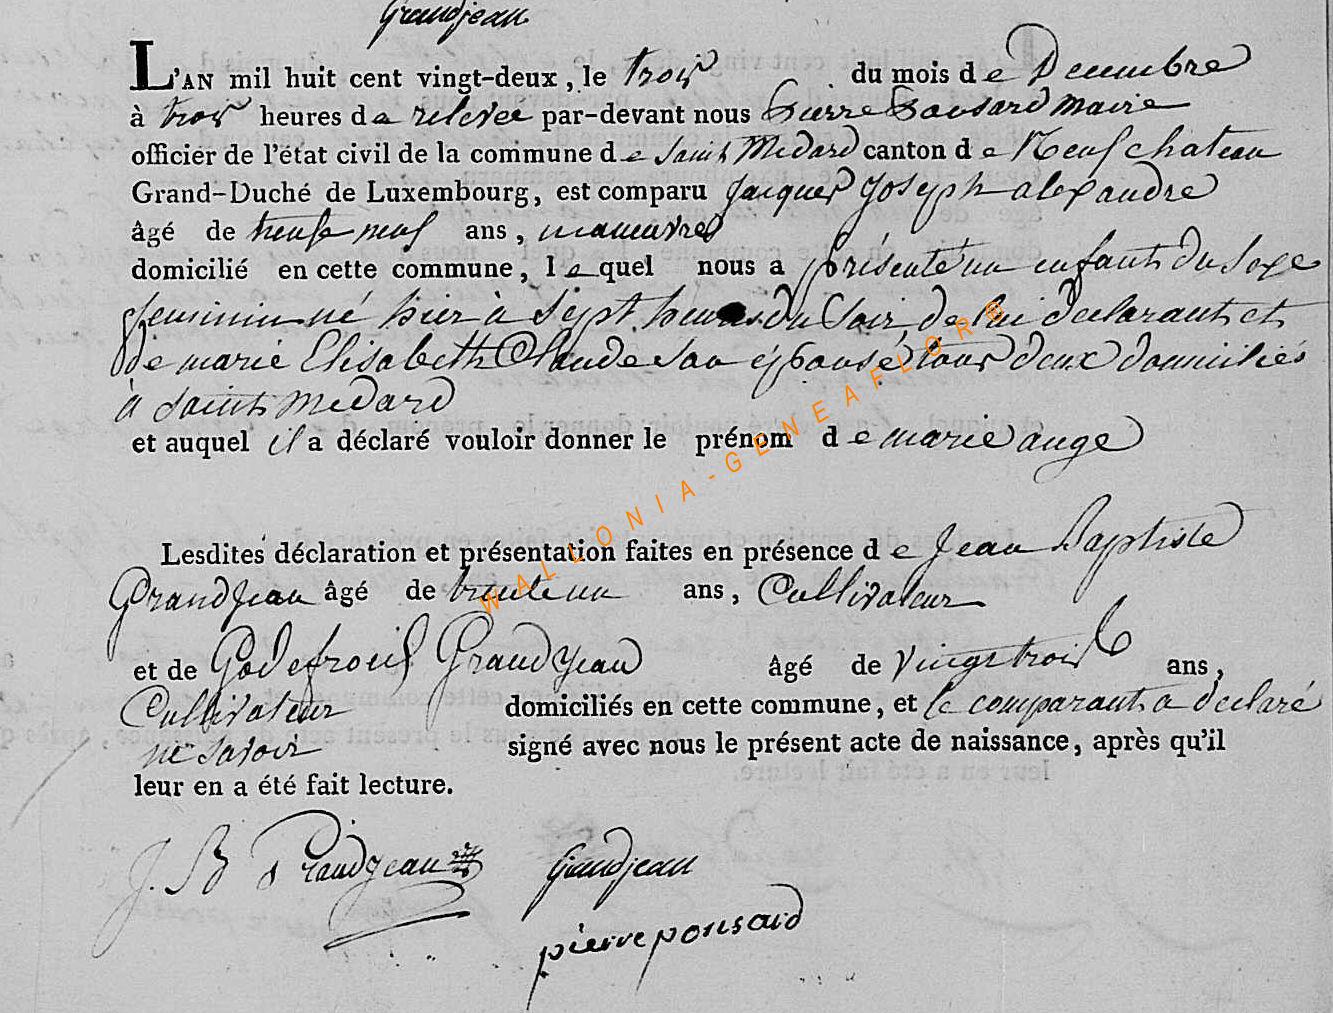 Grandjean
L'AN mil huit cent vingt-deux, le trois du mois de Decembre
à trois heures de relevée par-devant nous Pierre Ponsard maire
officier de l'état civil de la commune de Saint Medard canton de Neufchateau
Grand-Duché de Luxembourg, est comparu Jacques Joseph alexandre
âgé de trente neuf ans, manœuvre
domicilié en cette commune, lequel nous a présenté un enfant du sexe
feminin né hier à sept heures du Soir, de lui declarant et
de marie Elisabeth Claude son épouse, tous deux domiciliés
à Saint Medard
et auquel il a déclaré vouloir donner le prénom de marie ange
Lesdites déclaration et présentation faites en présence de Jean Baptiste
Grandjean âgé de trente un ans, Cultivateur
et de Godefroid Grandjean âgé de vingt trois ans,
Cultivateur domiciliés en cette commune, et le comparant a declaré
ne savoir signé avec nous le présent acte de naissance, après qu'il
leur en a été fait lecture.
J. B Grandjean Grandjean
pierre ponsard
WALLONIA-GENEAFLORE